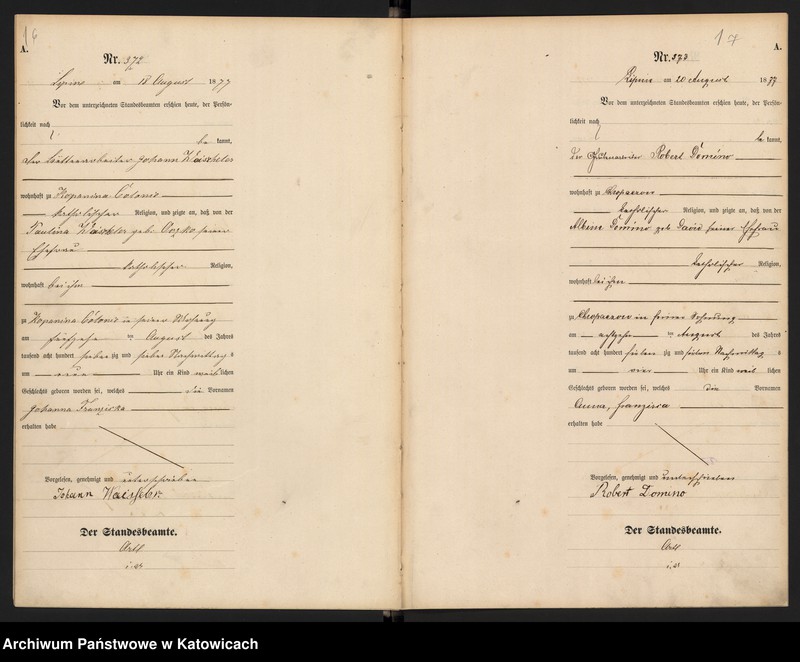 16
A.
Nr. 372
Lipine am 18 August 1877
Vor dem unterzeichneten Standesbeamten erschien heute, der Persön-
lichkeit nach
be kannt,
der Johann
wohnhaft zu Kopanina Colonie
katholischer Religion, und zeigte an, daß von der
Paulina geb. seiner
Ehefrau
katholischer Religion,
wohnhaft bei ihm
zu Kopanina Colonie in seiner Wohnung
am ten August des Jahres
tausend acht hundert sieben zig und sieben Nachmittag s
um Uhr ein Kind weib lichen
Geschlechts geboren worden sei, welches die Vornamen
Johanna Franziska
erhalten habe
Vorgelesen, genehmigt und unterschrieben
Johann
Der Standesbeamte.
17
A.
Nr. 373
Lipine am 20 August 1877
Vor dem unterzeichneten Standesbeamten erschien heute, der Persön-
lichkeit nach
be kannt,
der Robert Domino
wohnhaft zu Chropaczow
katholischer Religion, und zeigte an, daß von der
Albine Domino geb David seiner Ehefrau
katholischer Religion,
wohnhaft bei ihm
zu Chropaczow in seiner Wohnung
am achtzehn ten August des Jahres
tausend acht hundert sieben zig und sieben Nachmittag s
um vier Uhr ein Kind weib lichen
Geschlechts geboren worden sei, welches die Vornamen
Anna, Franzisca
erhalten habe
Vorgelesen, genehmigt und unterschrieben
Robert Domino
Der Standesbeamte.
Archiwum Państwowe w Katowicach